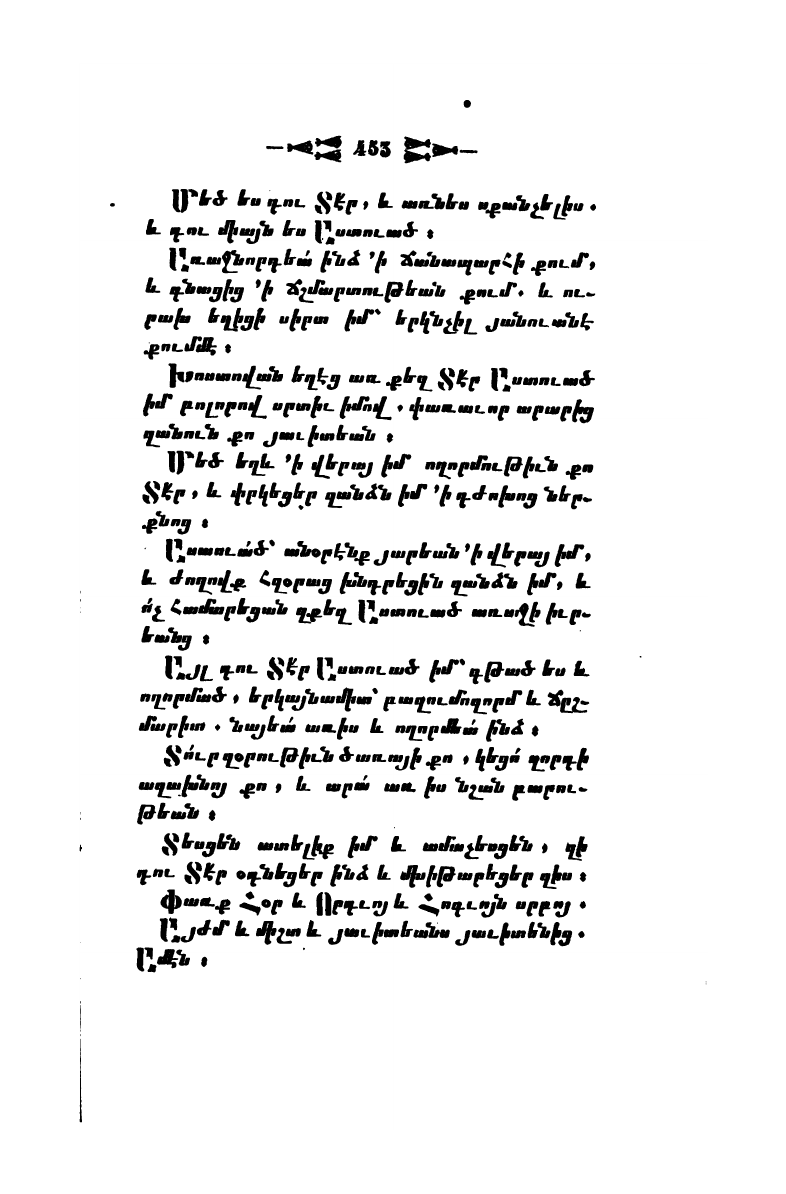 453
Մեծ ես դու Տէր, և առնես սքանչելիս.
և դու միայն ես Աստուած ։
Առաջնորդեա՛ ինձ ՚ի ճանապարհի քում,
և գնացից ՚ի ճշմարտութեան քում. և ու-
րախ եղիցի սիրտ իմ՝ երկնչիլ յանուանէ
քումմէ ։
Խոստովան եղէց առ քեզ Տէր Աստուած
իմ բոլորով սրտիւ իմով, փառաւոր արարից
զանուն քո յաւիտեան ։
Մեծ եղև ՚ի վերայ իմ ողորմութիւն քո
Տէր, և փրկեցեր զանձն իմ ՚ի դժոխոց ներ-
քնոց ։
Աստուա՛ծ՝ անօրէնք յարեան ՚ի վերայ իմ,
և ժողովք հզօրաց խնդրեցին զանձն իմ, և
ո՛չ համարեցան զքեզ Աստուած առաջի իւր-
եանց ։
Այլ դու Տէր Աստուած իմ՝ գթած ես և
ողորմած, երկայնամիտ՝ բազումողորմ և ճրշ-
մարիտ. նայեա՛ առիս և ողորմեա՛ ինձ ։
Տո՛ւր զօրութիւն ծառայի քո, կեցո՛ զորդի
աղախնոյ քո, և արա՛ առ իս նշան բարու-
թեան ։
Տեսցեն ատելիք իմ և ամաչեսցեն, զի
դու Տէր օգնեցեր ինձ և մխիթարեցեր զիս ։
Փառք Հօր և Որդւոյ և Հոգւոյն սրբոյ.
Այժմ և միշտ և յաւիտեանս յաւիտենից.
Ամէն ։